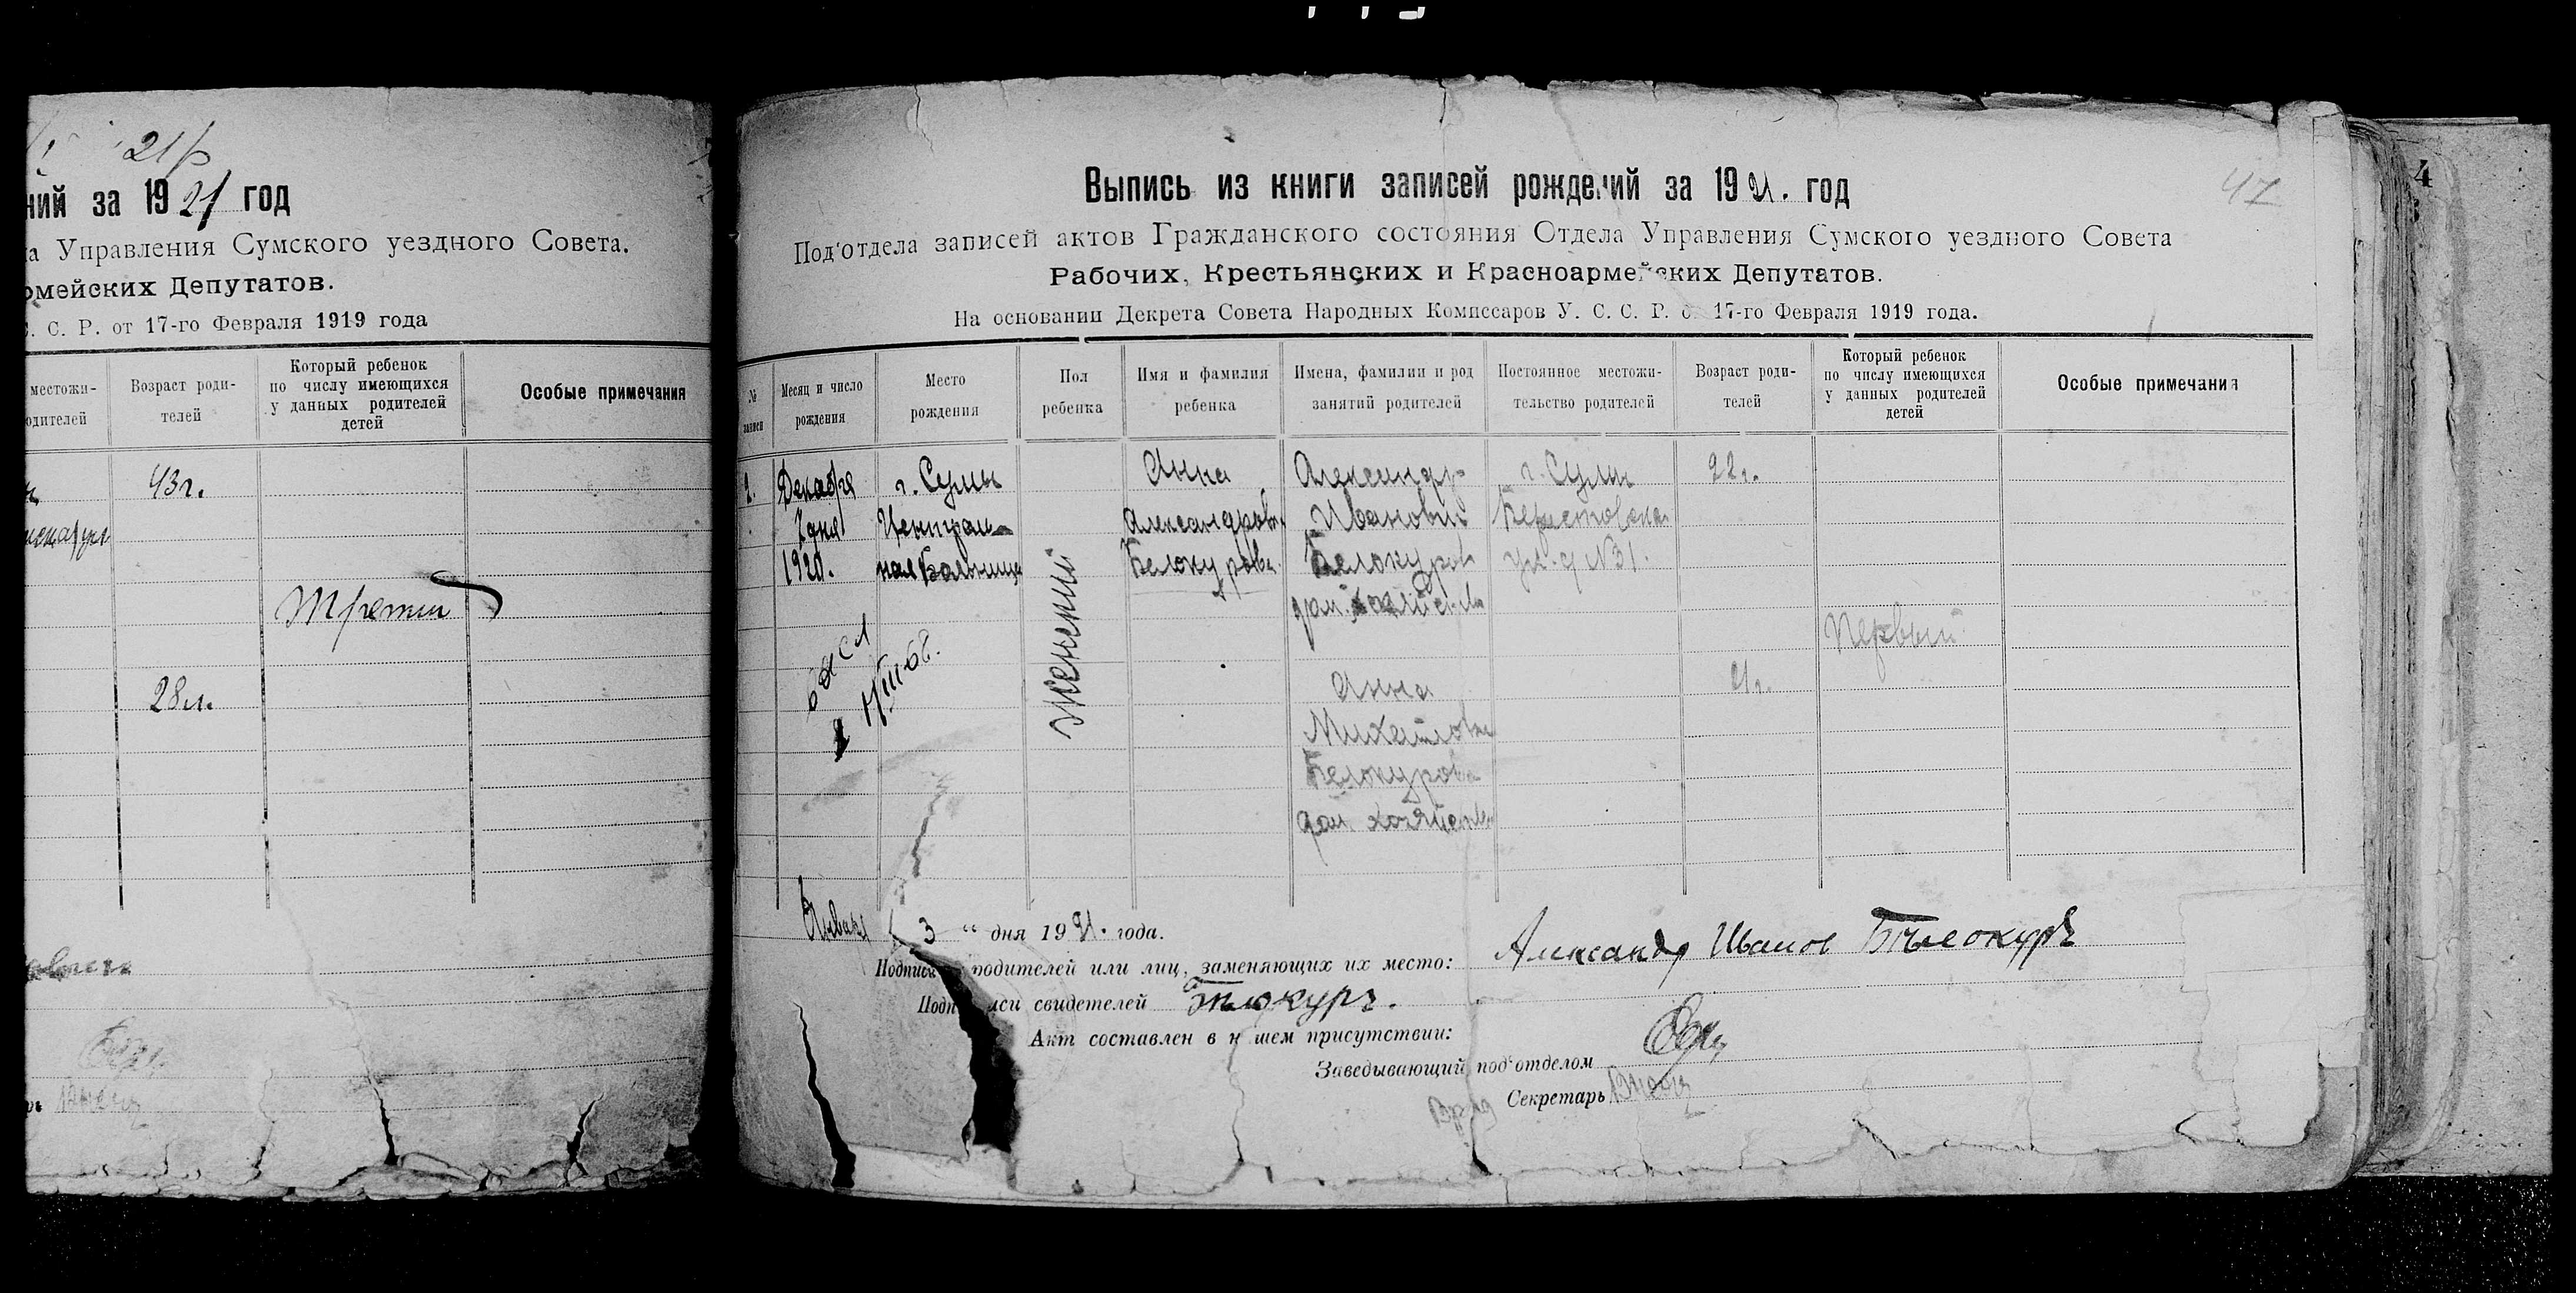 21 р
ний за 1921 год
а Управления Сумского уездного Совета.
рмейских Депутатов.
С. С. Р. от 17-го Февраля 1919 года
местожи-
одителей
Возраст роди-
телей
Который ребенок
по числу имеющихся
у данных родителей
детей
Особые примечания
43 г.
Третий
28 л.
47
4
Выпись из книги записей рождений за 1921. год
Под‘отдела записей актов Гражданского состояния Отдела Управления Сумского уездного Совета
Рабочих, Крестьянских и Красноармейских Депутатов.
На основании Декрета Совета Народных Комиссаров У. С. С. Р. от 17-го Февраля 1919 года.
№
записи
Месяц и число
рождения
Место
рождения
Пол
ребенка
Имя и фамилия
ребенка
Имена, фамилии и род
занятий родителей
Постоянное местожи-
тельство родителей
Возраст роди-
телей
Который ребенок
по числу имеющихся
у данных родителей
детей
Особые примечания
2.
Декабря
7 дня
1920.
г. Сумы
Централь
ная Больница
женский
Анна
Александровна
Белокурова
Александр
Иванович
Белокуров
дом. хозяйство
Анна
Михайловна
Белокурова
дом. хозяйство
г. Сумы
Берестовская
ул. д №31.
22 г.
21 г.
Первый
Января 3 “ дня 1921. года.
Подписи родителей или лиц, заменяющих их место: Александр Иванов Бѣлокуръ
Подписи свидетелей Бѣлокуръ.
Акт составлен в нашем присутствии:
Заведывающий под‘отделом
Врид Секретарь